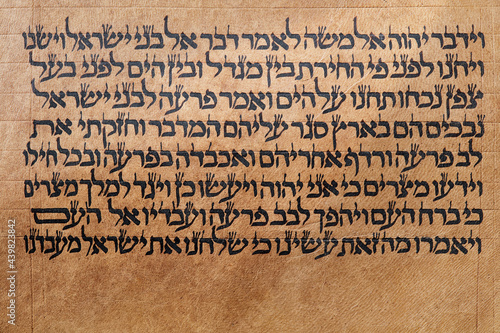 וידבר יהוה אל משה לאמר דבר אל בני ישראל וישבו
ויחנו לפני פי החירת בין מגדל ובין הים לפני בעל
צפן נכחו תחנו על הים ואמר פרעה לבני ישראל
נבכים הם בארץ סגר עליהם המדבר וחזקתי את
לב פרעה ורדף אחריהם ואכבדה בפרעה ובכל חילו
וידעו מצרים כי אני יהוה ויעשו כן ויגד למלך מצרים
כי ברח העם ויהפך לבב פרעה ועבדיו אל העם
ויאמרו מה זאת עשינו כי שלחנו את ישראל מעבדנו
439823842